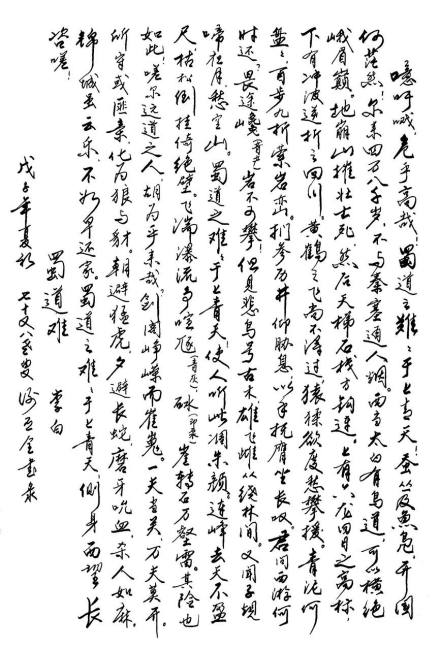 噫吁嚱,危乎高哉!蜀道之难,难于上青天!蚕丛及鱼凫,开国
何茫然!尔来四万八千岁,不与秦塞通人烟。西当太白有鸟道,可以横绝
峨眉巅。地崩山摧壮士死,然后天梯石栈方钩连。上有六龙回日之高标,
下有冲波逆折之回川。黄鹤之飞尚不得过,猿猱欲度愁攀援。青泥何
盘盘,百步九折萦岩峦。扪参历井仰胁息,以手抚膺坐长叹。君问西游何
时还?畏途巉(音产)岩不可攀!但见悲鸟号古木,雄飞雌从绕林间。又闻子规
啼夜月,愁空山。蜀道之难,难于上青天!使人听此凋朱颜。连峰去天不盈
尺,枯松倒挂倚绝壁。飞湍瀑流争喧豗,砯崖转石万壑雷。其险也
如此!嗟尔远道之人,胡为乎来哉!剑阁峥嵘而崔嵬。一夫当关,万夫莫开。
所守或匪亲,化为狼与豺。朝避猛虎,夕避长蛇,磨牙吮血,杀人如麻。
锦城虽云乐,不如早还家。蜀道之难,难于上青天!侧身西望长
咨嗟!
蜀道难 李白
戊子年夏 七十又八叟 书录